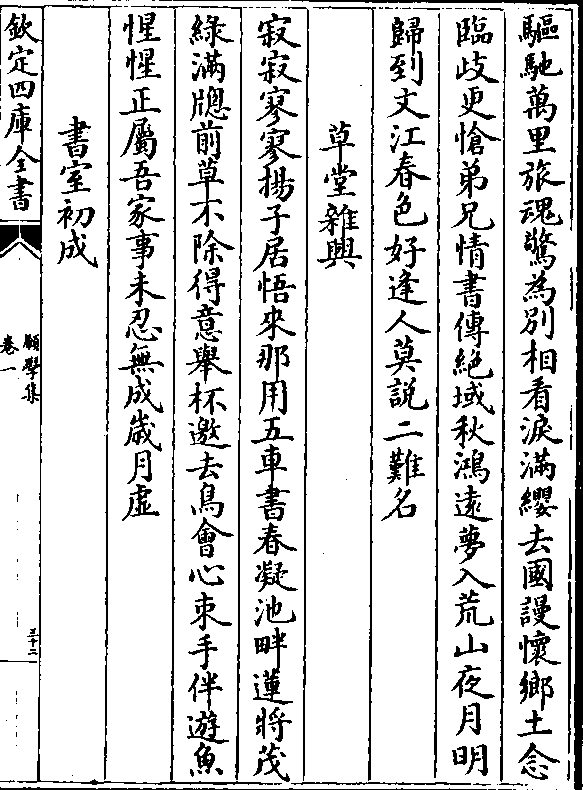 驅馳萬里旅魂驚為別相看淚滿纓去國謾懷鄉土念
臨歧更愴弟兄情書傳絕域秋鴻遠夢入荒山夜月明
歸到文江春色好逢人莫說二難名
草堂雜興
寂寂寥寥揚子居悟來那用五車書春凝池畔蓮將茂
綠滿牕前草不除得意舉杯邀去鳥會心束手伴遊魚
惺惺正屬吾家事未忍無成嵗月虛
書室初成
欽定四庫全書
願學集
卷一
三十二